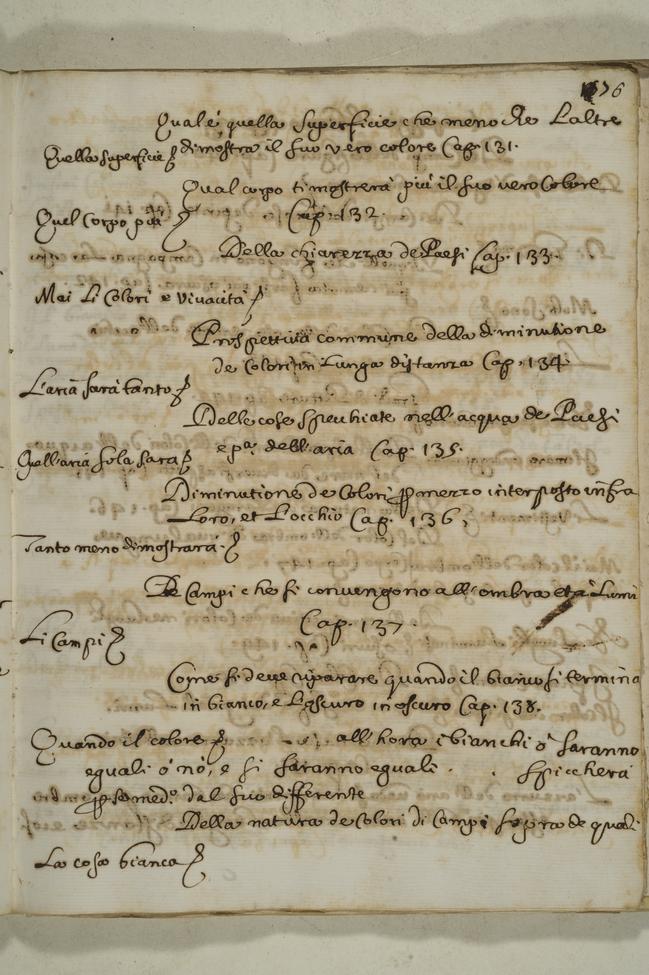 176
Qual'e quella superficie che meno che L'altre
Quella superficie dimostra il suo vero colore Cap. 131.
Qual corpo ti mostrera piu il suo vero Colore
Cap. 132.
Quel Corpo piu
Della chiarezza de Paesi Cap. 133.
Mai Li Colori e Vivacita
Prospettiva commune della diminutione
de Colori in Lunga distanza Cap. 134.
L'aria sarà tanto
Delle cose specchiate nell'acqua de Paesi
e pa. dell'aria Cap. 135.
Quell'aria sola sara
Diminutione de Colori mezzo interposto infra
Loro, et L'occhio Cap. 136.
Tanto meno dimostrara
De Campi che si convengono all'ombra et a Lumi
Cap. 137.
Li Campi
Come si deve riparare quando il bianco si termina
in bianco, e L'oscuro in oscuro Cap. 138.
Quando il colore all'hora i bianchi ò saranno
eguali ò nò, e si saranno eguali . . spicchera
dal suo differente
Della natura de Colori di Campi sopra de quali
La cosa bianca